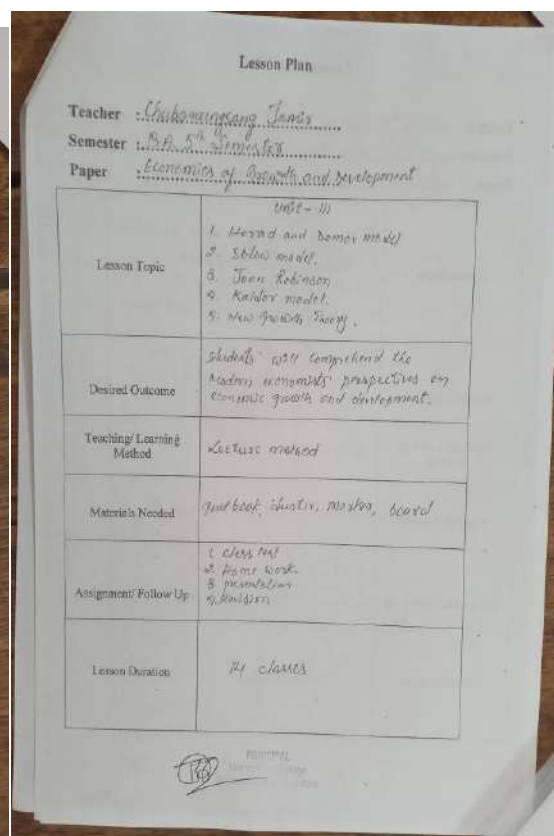 Lesson Plan
Teacher : Chubamungsang Jamir
Semester : B.A. 5th Semester
Paper : Economics of Growth and Development
Lesson Topic
Unit - III
1. Harrod and Domar model
2. Solow model.
3. Joan Robinson
4. Kaldor model.
5. New Growth Theory.
Desired Outcome
Students will comprehend the
Modern economists' perspectives on
economic growth and development.
Teaching/ Learning
Method
Lecture method
Materials Needed
Text book, duster, marker, board
Assignment/ Follow Up
1. Class test
2. Home work.
3. presentation
4. Revision
Lesson Duration
14 classes
PRINCIPAL
College